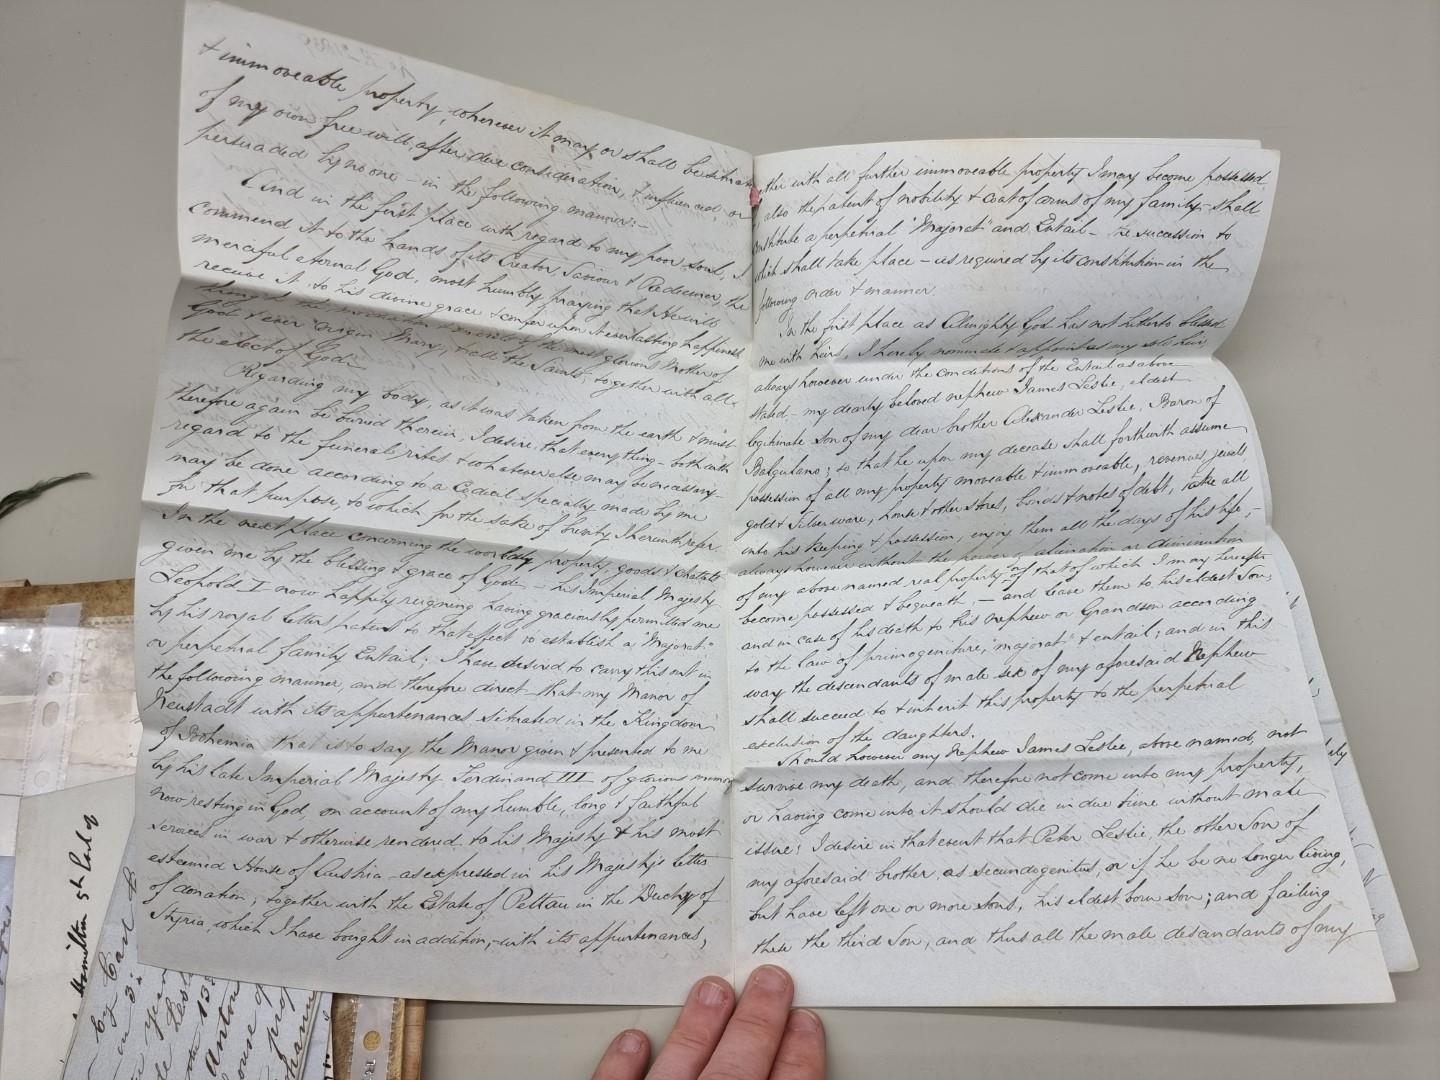 & immoveable property, wherever it may or shall be situate
of my own free will, after due consideration, & influenced or
persuaded by no one - in the following manner:-
And in the first place with regard to my poor soul, I
commend it to the hands of its Creator Saviour & Redeemer, the
merciful eternal God, most humbly praying that He will
receive it to his divine grace & confer upon it everlasting happiness
through the mediation & merits of the most glorious Mother of
God & ever Virgin Mary, & all the Saints, together with all
the elect of God.
Regarding my body, as it was taken from the earth & must
therefore again be buried therein, I desire, that everything - both with
regard to the funeral rites & whatever else may be necessary -
may be done according to a Codicil specially made by me
for that purpose, to which for the sake of brevity I herewith refer.
In the next place concerning the worldly property, goods & chattels
given me by the blessing & grace of God - his Imperial Majesty
Leopold I now happily reigning having graciously permitted me
by his royal letters patent to that effect to establish a "Majorat"
or perpetual family Entail; I have desired to carry this out in
the following manner, and therefore direct - that my Manor of
Neustadt with its appurtenances situated in the Kingdom
of Bohemia that is to say the Manor given & presented to me
by his late Imperial Majesty Ferdinand III of glorious memory
now resting in God, on account of my humble, long & faithful
services in war & otherwise rendered to his Majesty & his most
esteemed House of Austria - as expressed in his Majesty's letter
of donation; together with the Estate of Pettau in the Duchy of
Styria, which I have bought in addition,- with its appurtenances,
ether with all further immoveable property I may become possessed
also the patent of nobility & coat of arms of my family - shall
nstitute a perpetual "Majorat" and Entail - the succession to
which shall take place - as required by its constitution - in the
following order & manner.
In the first place as Almighty God has not hitherto blessed
me with heirs, I hereby nominate & appoint as my sole heir,
always however under the conditions of the Entail as above
stated - my dearly beloved nephew James Leslie, eldest
legitimate son of my dear brother Alexander Leslie, Baron of
Balquhano; so that he upon my decease shall forthwith assume
possession of all my property moveable & immoveable, revenues, jewels
gold & silver ware, house & other stores, bonds & notes of debt, take all
into his keeping & possession, enjoy them all the days of his life, -
always however without the power of alienation or diminution
of my above named real property - or of that of which I may hereafter
become possessed & bequeath, - and leave them to his eldest Son;
and in case of his death to his nephew or Grandson according
to the law of primogeniture, "majorat" & entail; and in this
way the descendants of male sex of my aforesaid Nephew
shall succeed to & inherit this property to the perpetual
exclusion of the daughters.
Should however my Nephew James Leslie, above named, not
survive my death, and therefore not come into my property,
or having come into it should die in due time without male
issue; I desire in that event that Peter Leslie, the other Son of
my aforesaid brother, as secundogenitus, or if he be no longer living,
but have left one or more sons, his eldest born son; and failing
these the third Son, and thus all the male descendants of my
Hamilton 5th